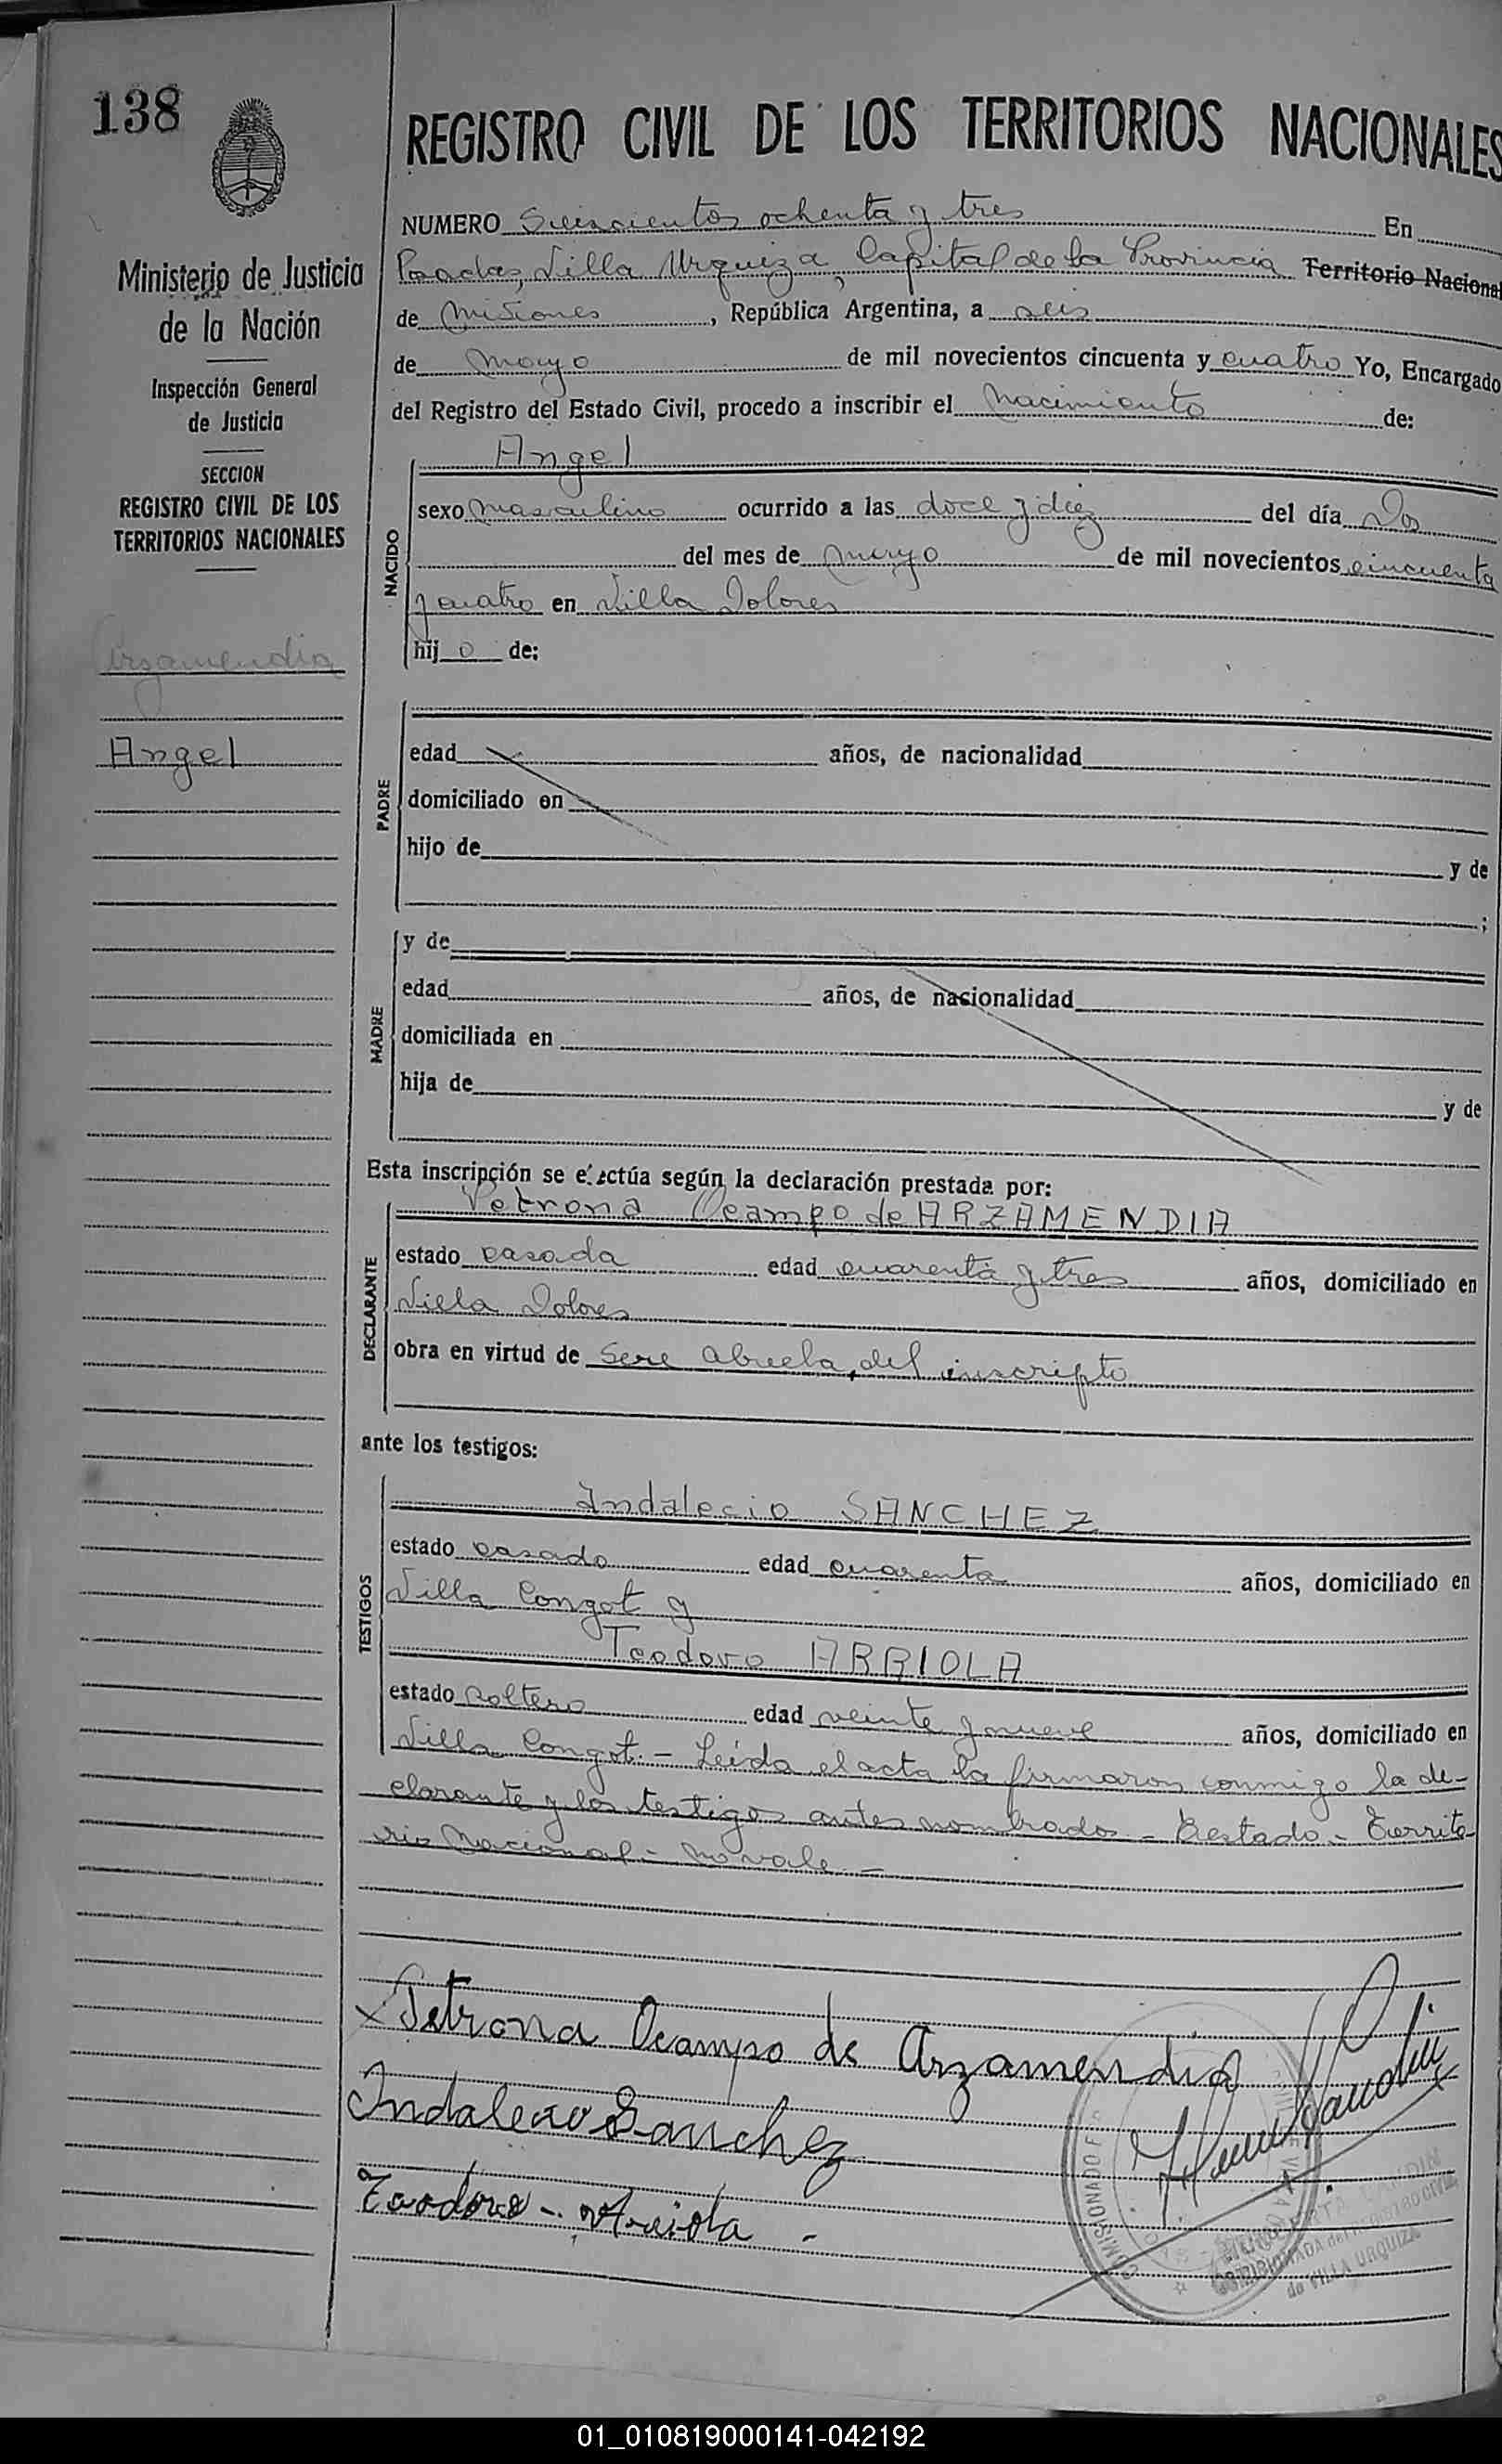 138
REGISTRO CIVIL DE LOS TERRITORIOS NACIONALES
Ministerio de Justicia
de la Nación
Inspección General
de Justicia
SECCION
REGISTRO CIVIL DE LOS
TERRITORIOS NACIONALES
Arzamendia
Angel
NUMERO Seiscientos ochenta y tres En
Posadas, Villa Urquiza, Capital de la Provincia Territorio Nacional
de Misiones, República Argentina, a seis
de mayo de mil novecientos cincuenta y cuatro Yo, Encargado
del Registro del Estado Civil, procedo a inscribir el nacimiento de:
NACIDO
Angel
sexo masculino ocurrido a las doce y diez del día Dos
del mes de mayo de mil novecientos cincuenta
y cuatro en Villa Dolores
hij o de:
PADRE
edad años, de nacionalidad
domiciliado en
hijo de y de
;
MADRE
y de
edad años, de nacionalidad
domiciliada en
hija de y de
Esta inscripción se efectúa según la declaración prestada por:
DECLARANTE
Petrona Ocampo de ARZAMENDIA
estado casada edad cuarenta y tres años, domiciliado en
Villa Dolores
obra en virtud de Sere abuela, del inscripto
ante los testigos:
TESTIGOS
Indalecio SANCHEZ
estado casado edad cuarenta años, domiciliado en
Villa Congot y
Teodoro ARRIOLA
estado soltero edad veinte y nueve años, domiciliado en
Villa Congot. - Leida el acta la firmaron conmigo la de-
clarante y los testigos antes nombrados - Testado - Territo-
rio Nacional - no vale -
Petrona Ocampo de Arzamendia
Indalecio Sanchez
Teodoro - Arriola -
COMISIONADO
COMISIONADA del REGISTRO CIVIL
de VILLA URQUIZA
01_010819000141-042192